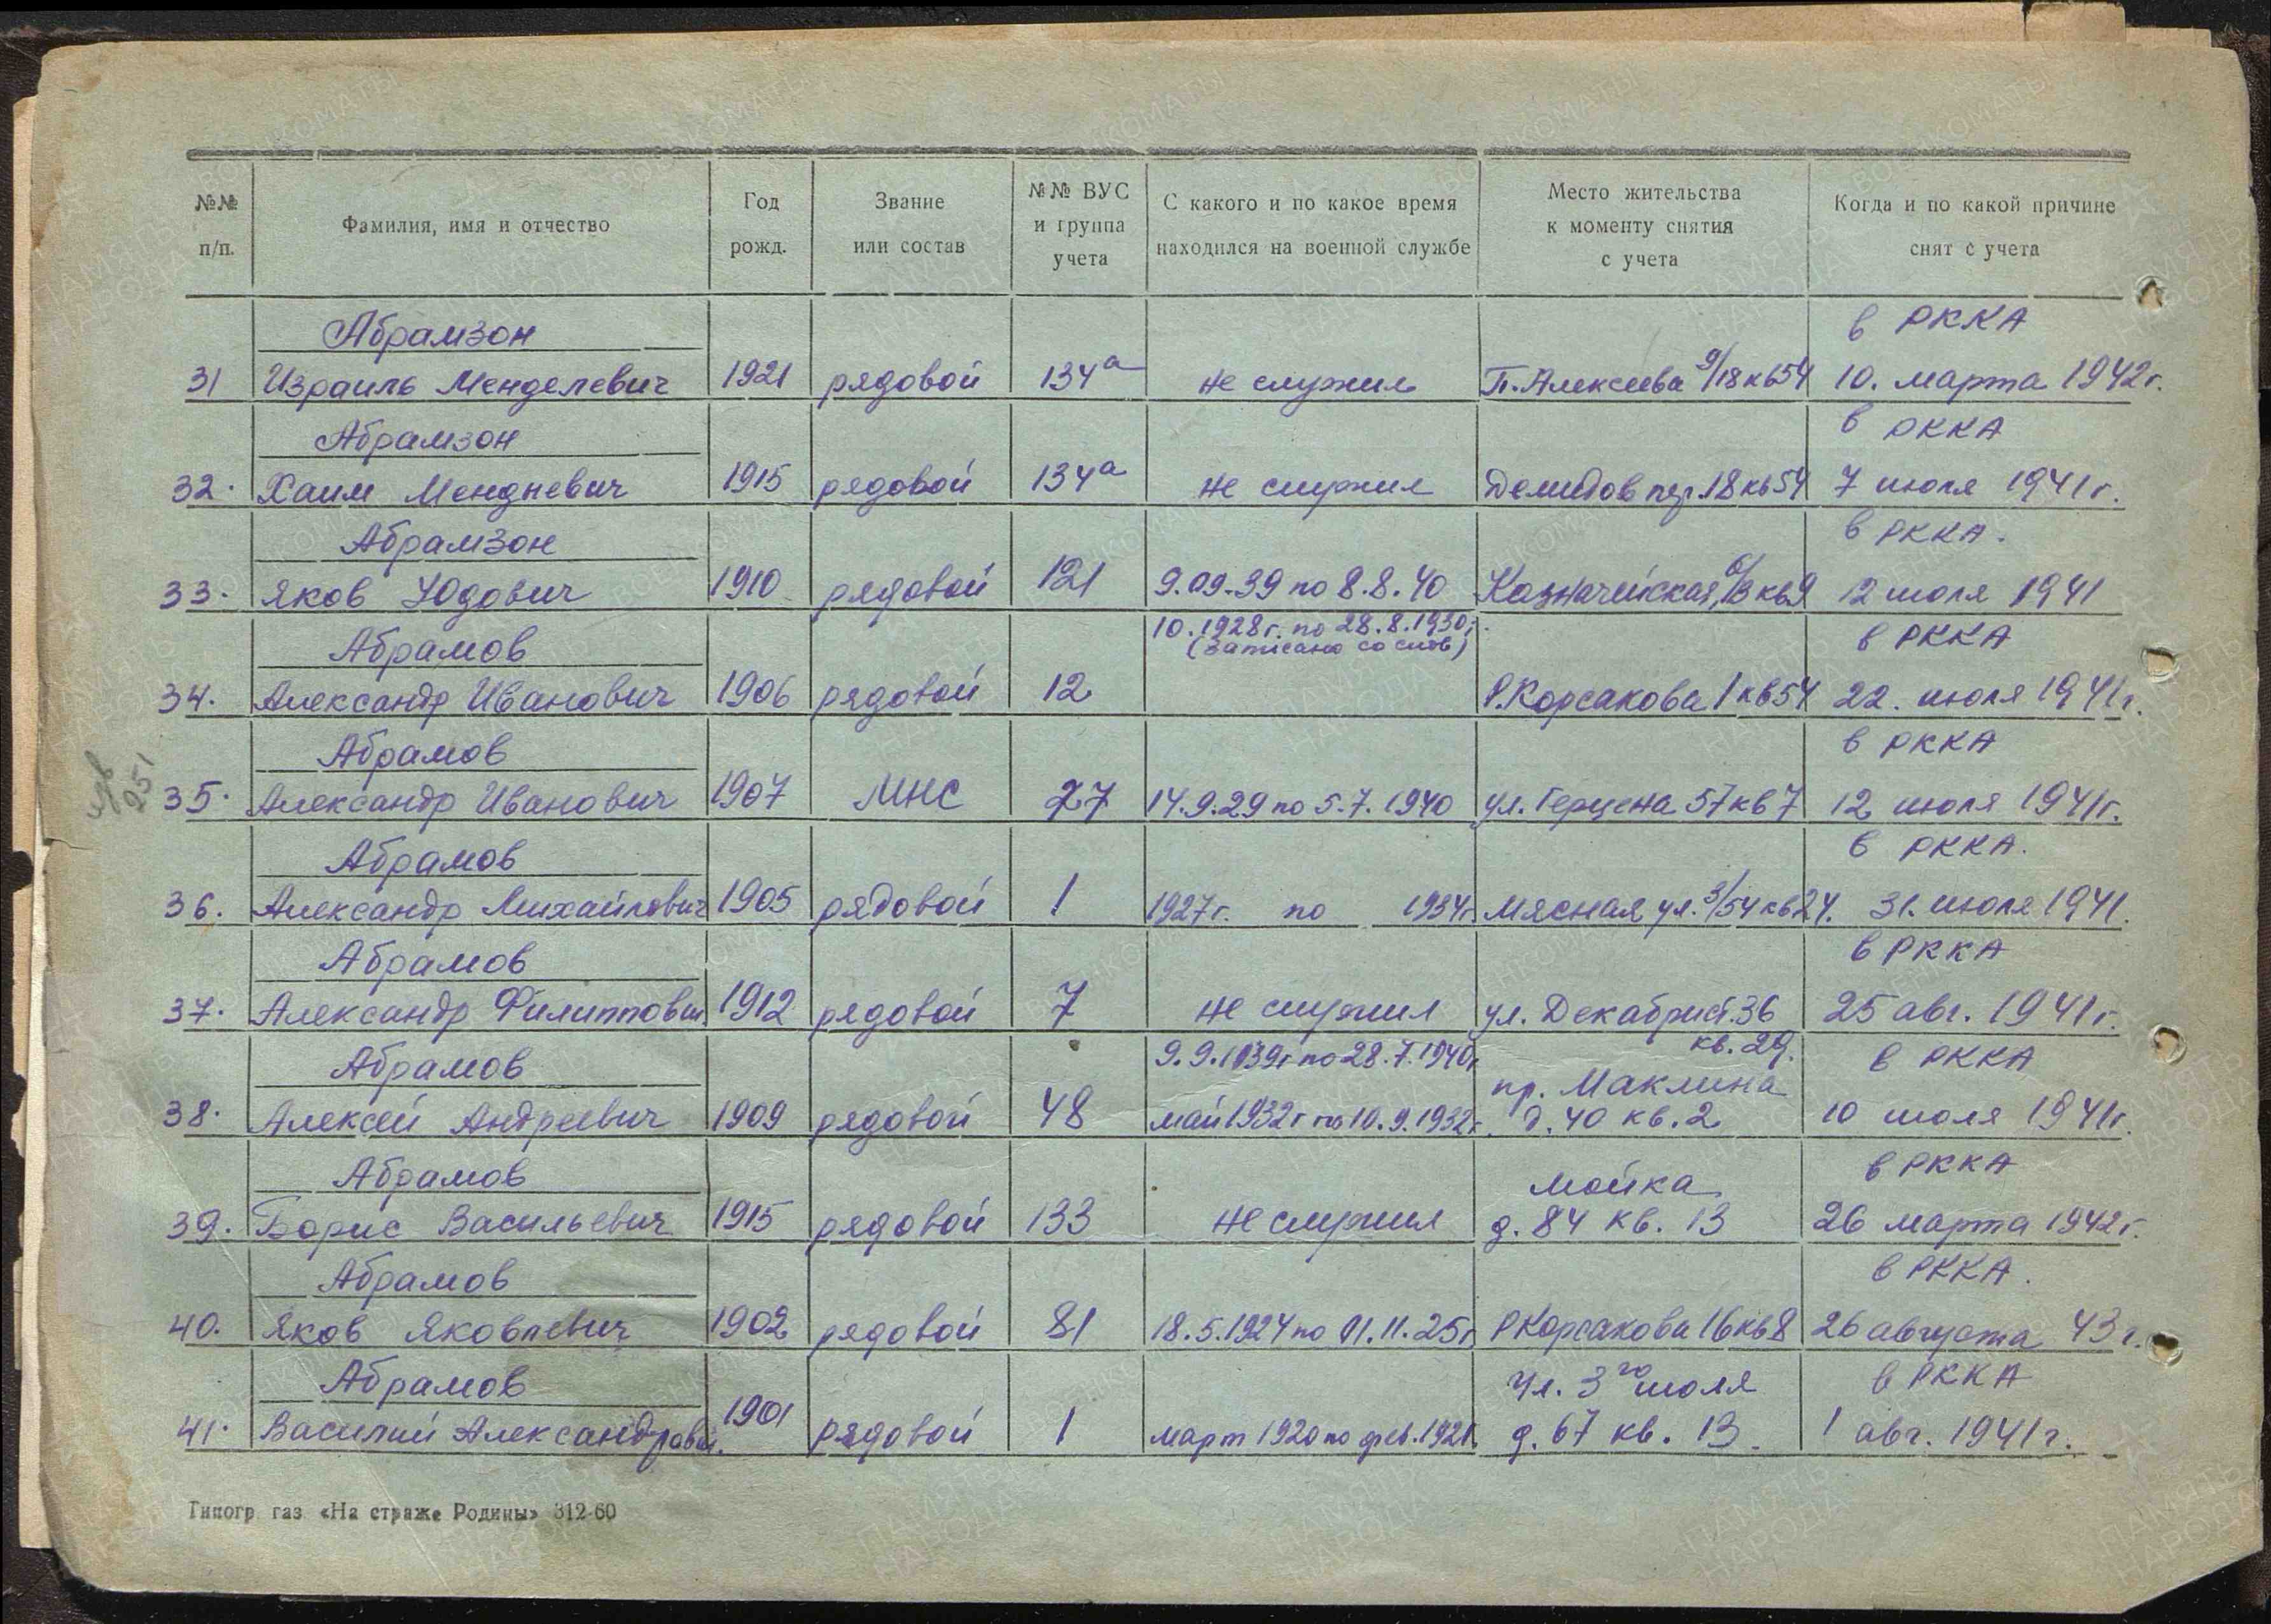 №№ п/п. | Фамилия, имя и отчество | Год рожд. | Звание или состав | №№ ВУС и группа учета | С какого и по какое время находился на военной службе | Место жительства к моменту снятия с учета | Когда и по какой причине снят с учета
Абрамзон | в РККА
31 | Израиль Менделевич | 1921 | рядовой | 134а | не служил | П. Алексеева 9/18 кв 54 | 10. марта 1942г.
Абрамзон | в РККА
32. | Хаим Мендневич | 1915 | рядовой | 134а | не служил | Демидов пер. 18 кв 54 | 7 июля 1941г.
Абрамзон | в РККА.
33. | Яков Юдович | 1910 | рядовой | 121 | 9.09.39 по 8.8.40 | Казначейская, 6/13 кв 9 | 12 июля 1941
Абрамов | 10.1928г. по 28.8.1930г. (записано со слов) | в РККА
34. | Александр Иванович | 1906 | рядовой | 12 | Р.Корсакова 1 кв 54 | 22. июля 1941г.
Абрамов | в РККА
35. | Александр Иванович | 1907 | МНС | 27 | 14.9.29 по 5.7.1940 | ул. Герцена 57 кв 7 | 12 июля 1941г.
251
Абрамов | в РККА.
36. | Александр Михайлович | 1905 | рядовой | 1 | 1927г. по 1934г. | Мясная ул. 3/54 кв 24. | 31. июля 1941.
Абрамов | в РККА
37. | Александр Филиппович | 1912 | рядовой | 7 | не служил | ул. Декабрист. 36 кв. 29. | 25 авг. 1941г.
Абрамов | 9.9.1939г по 28.7.1940г | пр. Маклина | в РККА
38. | Алексей Андреевич | 1909 | рядовой | 48 | май 1932г по 10.9.1932г. | д. 40 кв. 2 | 10 июля 1941г.
Абрамов | Мойка | в РККА
39. | Борис Васильевич | 1915 | рядовой | 133 | не служил | д. 84 кв. 13 | 26 марта 1942г.
Абрамов | в РККА.
40. | Яков Яковлевич | 1902 | рядовой | 81 | 18.5.1924 по 11.11.25г | Р Корсакова 16 кв 8 | 26 августа 43г.
Абрамов | Ул. 3го июля | в РККА
41. | Василий Александрович. | 1901 | рядовой | 1 | март 1920 по фев. 1921. | д. 67 кв. 13. | 1 авг. 1941г.
Типогр газ «На страже Родины» 312-60